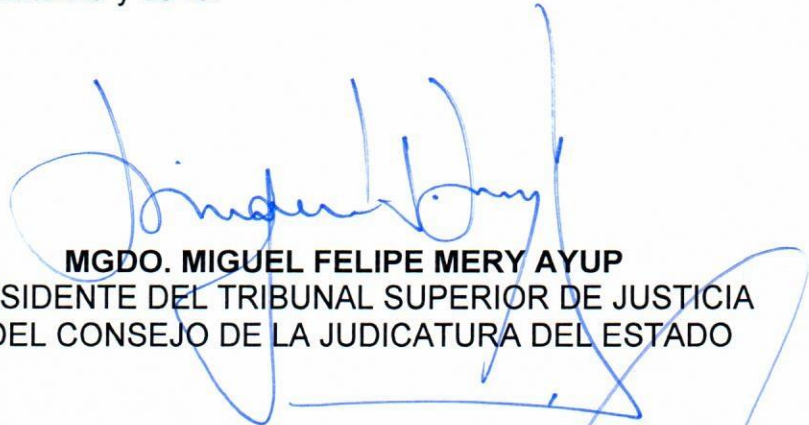 MGDO. MIGUEL FELIPE MERY AYUP
SIDENTE DEL TRIBUNAL SUPERIOR DE JUSTICIA
DEL CONSEJO DE LA JUDICATURA DEL ESTADO